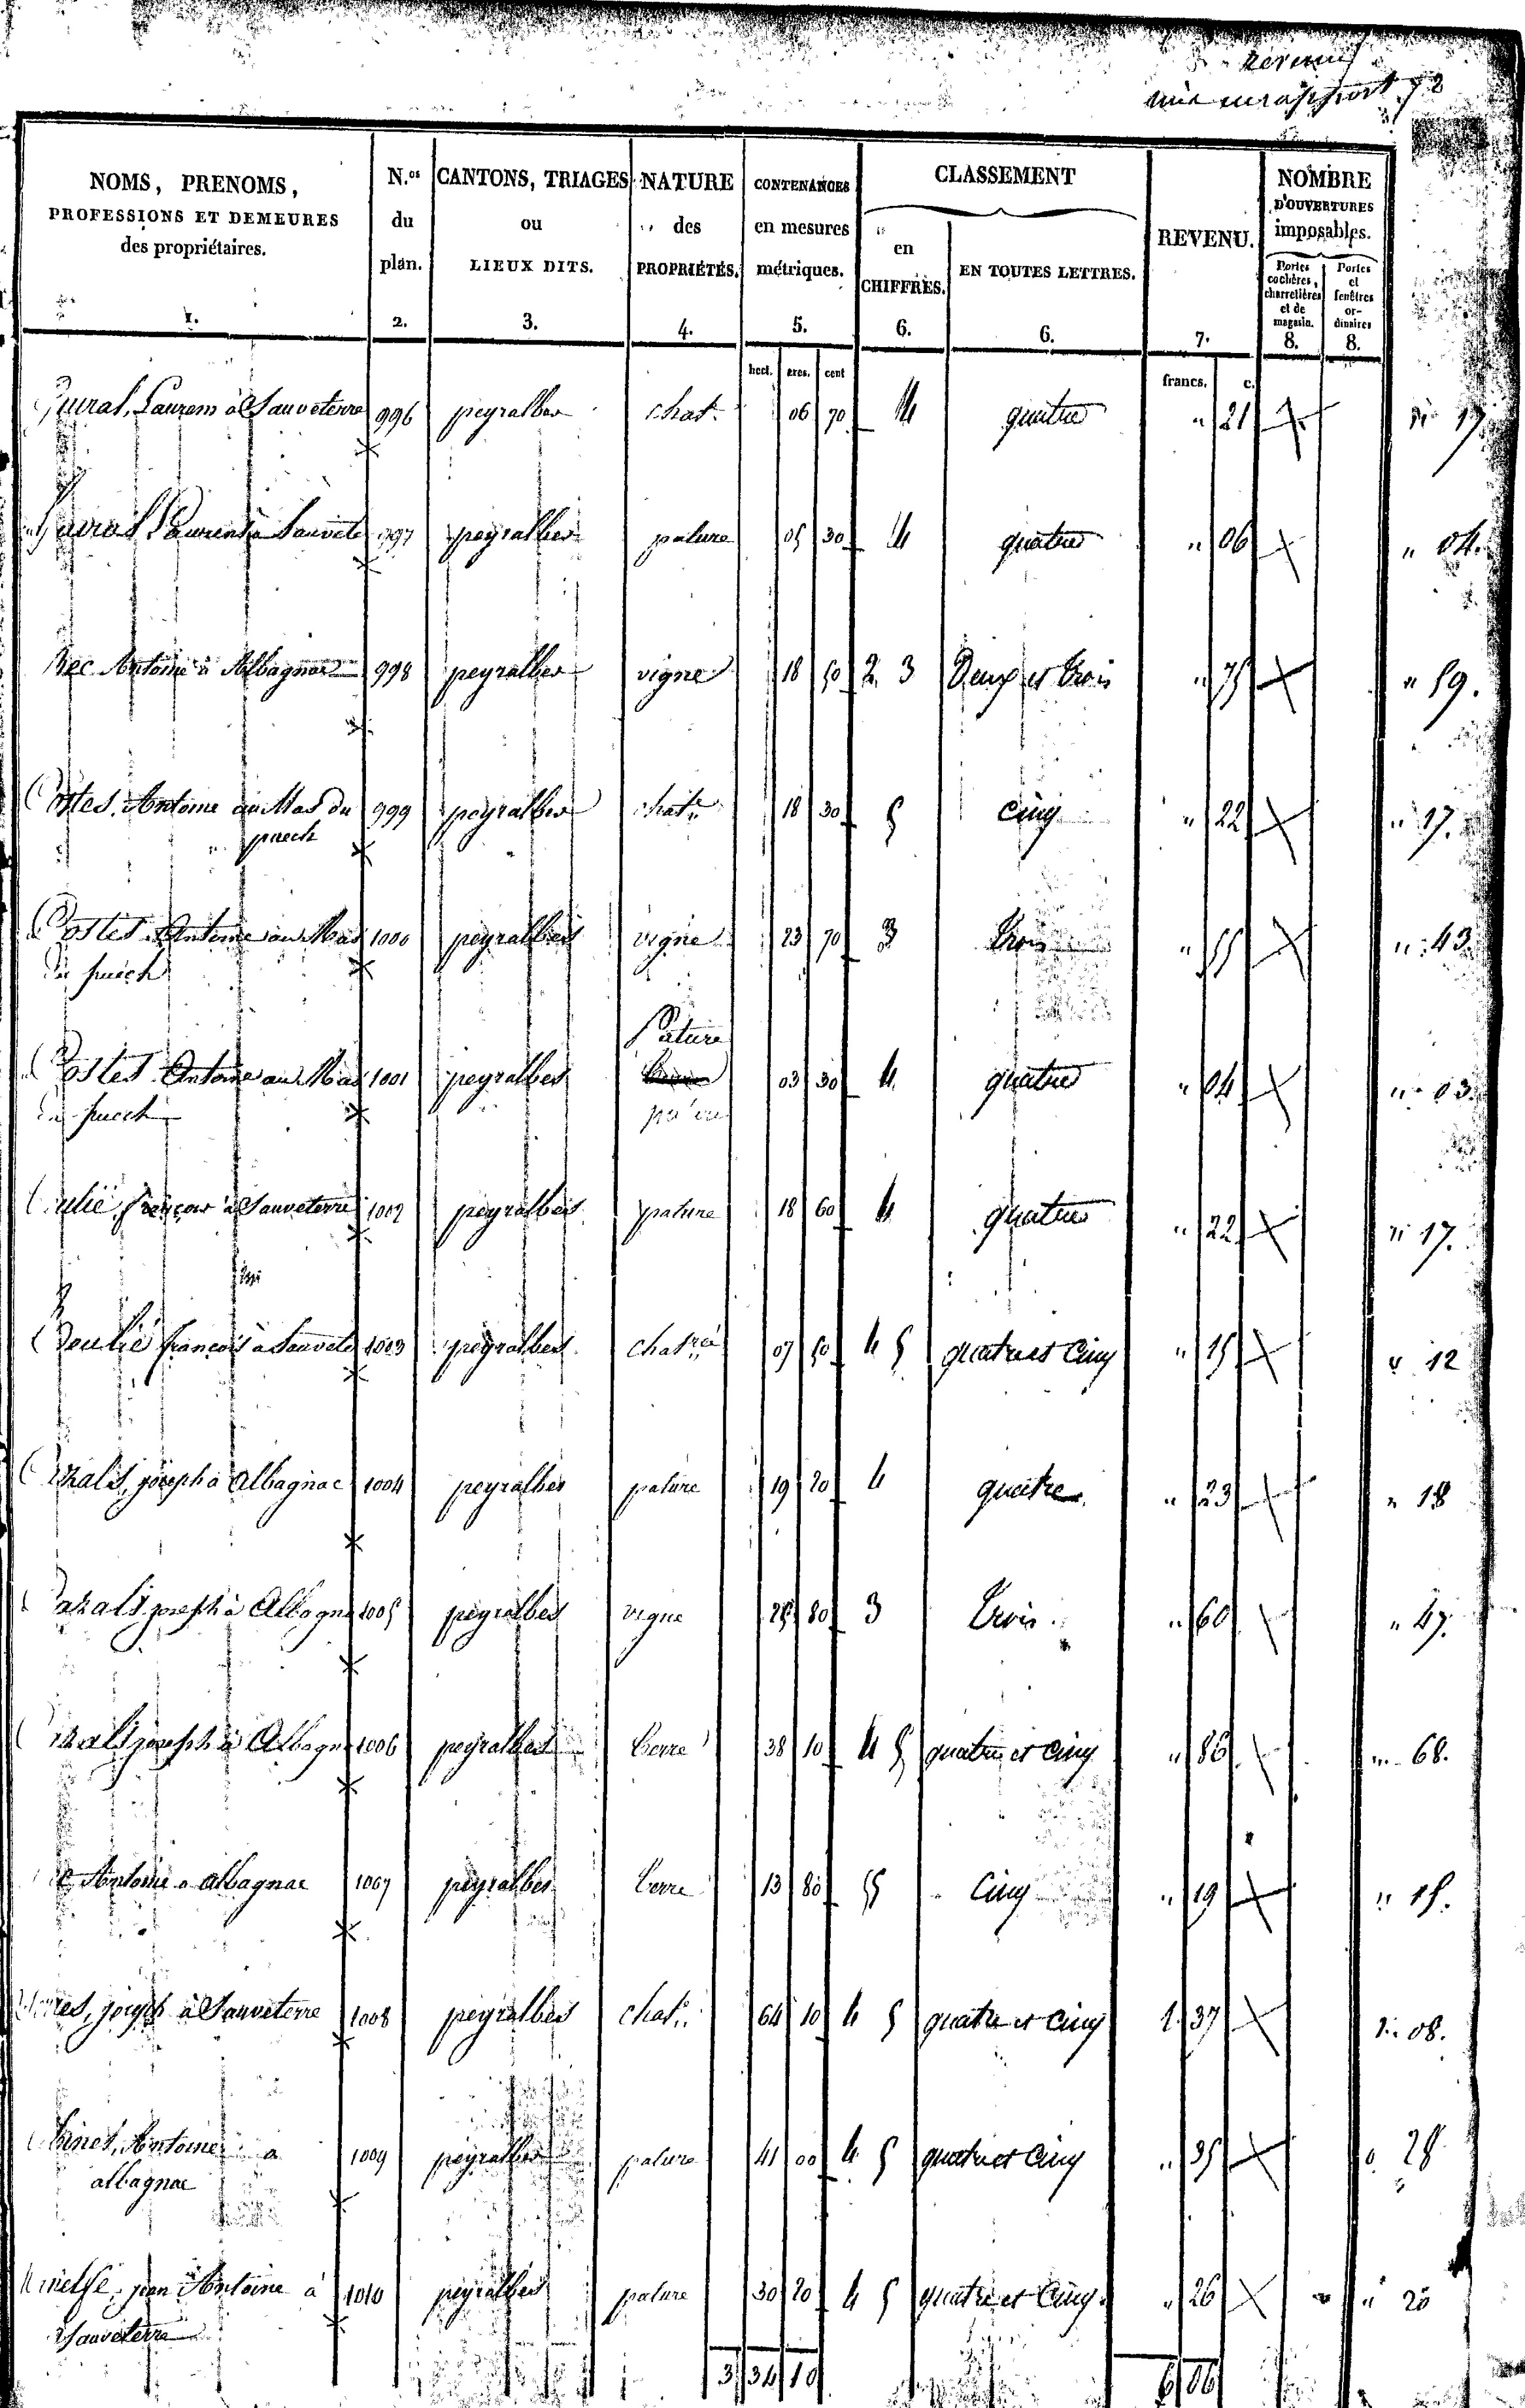 revenu
mis en rapport 72
NOMS, PRENOMS,
PROFESSIONS ET DEMEURES
des propriétaires.
1.
N.os
du
plan.
2.
CANTONS, TRIAGES
ou
LIEUX DITS.
3.
NATURE
des
PROPRIÉTÉS.
4.
CONTENANCES
en mesures
métriques.
5.
CLASSEMENT
en
CHIFFRES.
6.
EN TOUTES LETTRES.
6.
REVENU.
7.
NOMBRE
D'OUVERTURES
imposables.
Portes
cochères,
charretières
et de
magasin.
8.
Portes
et
fenêtres
or-
dinaires
8.
hect. ares. cent francs. c.
Laurens à Sauveterre 996 peyralbes chat. 06 70 4 quatre " 21 " 17
Laurens à Sauvete 997 peyralbes pature 05 30 4 quatre " 06 " 04.
Bec Antoine à Albagnac 998 peyralbes vigne 18 50 2. 3 Deux et trois " 75 " 59.
Costes, Antoine au Mas du 999 peyralbes chat. 18 30 5 Cinq " 22 " 17.
puech
Costes Antoine au Mas 1000 peyralbes vigne 23 70 3 trois " 55 " 43.
du puech
Pature
Costes Antoine au Mas 1001 peyralbes 03 30 4 quatre " 04 " 03.
du puech
françois à Sauveterre 1002 peyralbes pature 18 60 4 quatre " 22 " 17.
françois à Sauvete 1003 peyralbes chat. 07 50 4 5 quatre et Cinq " 15 " 12
joseph à Albagnac 1004 peyralbes pature 19 20 4 quatre " 23 " 18
joseph à Albagn 1005 peyralbes vigne 25 80 3 trois " 60 " 47.
joseph à Albagn 1006 peyralbes terre 38 10 4 5 quatre et Cinq " 86 " 68.
Antoine à albagnac 1007 peyralbes terre 13 80 5 Cinq " 19 " 15.
joseph à Sauveterre 1008 peyralbes chat. 64 10 4 5 quatre et Cinq 1. 37 1. 08.
Antoine à 1009 peyralbes pature 41 00 4 5 quatre et Cinq " 35 " 28
albagnac
jean Antoine à 1010 peyralbes pature 30 20 4 5 quatre et Cinq. " 26 " 20
Sauveterre
3 34 10 6 06